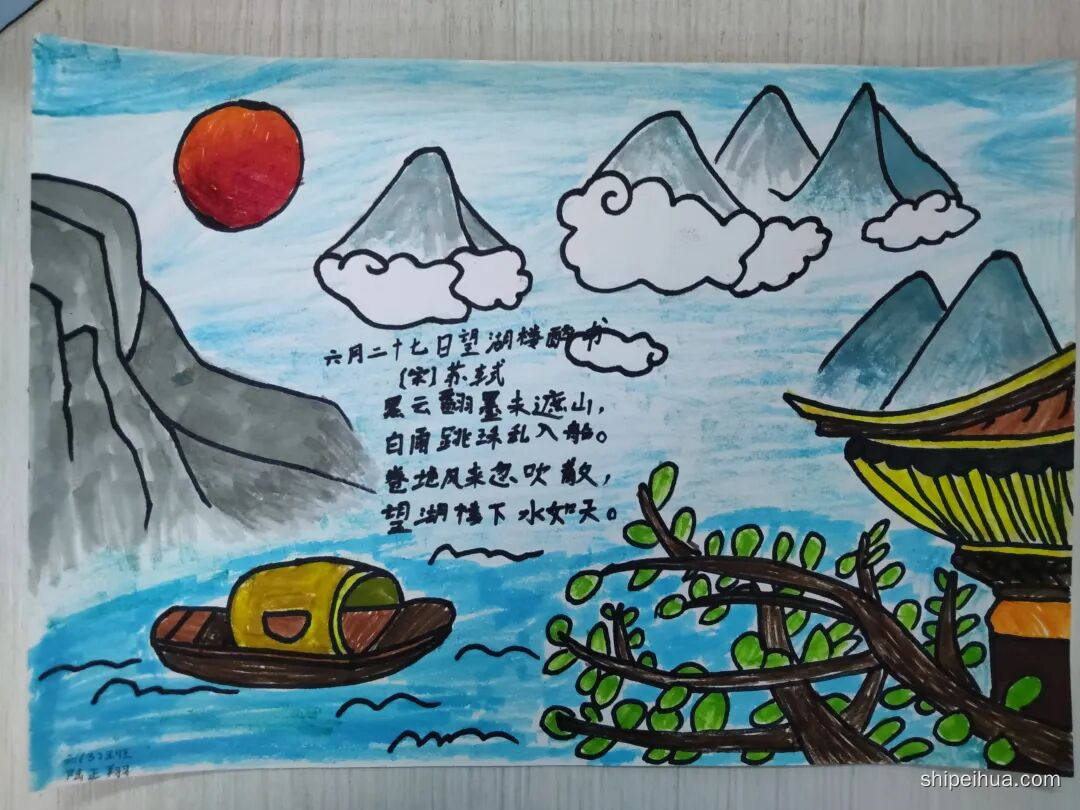 六月二十七日望湖楼醉书
【宋】苏轼
黑云翻墨未遮山，
白雨跳珠乱入船。
卷地风来忽吹散，
望湖楼下水如天。
陆正翔
shipeihua.com